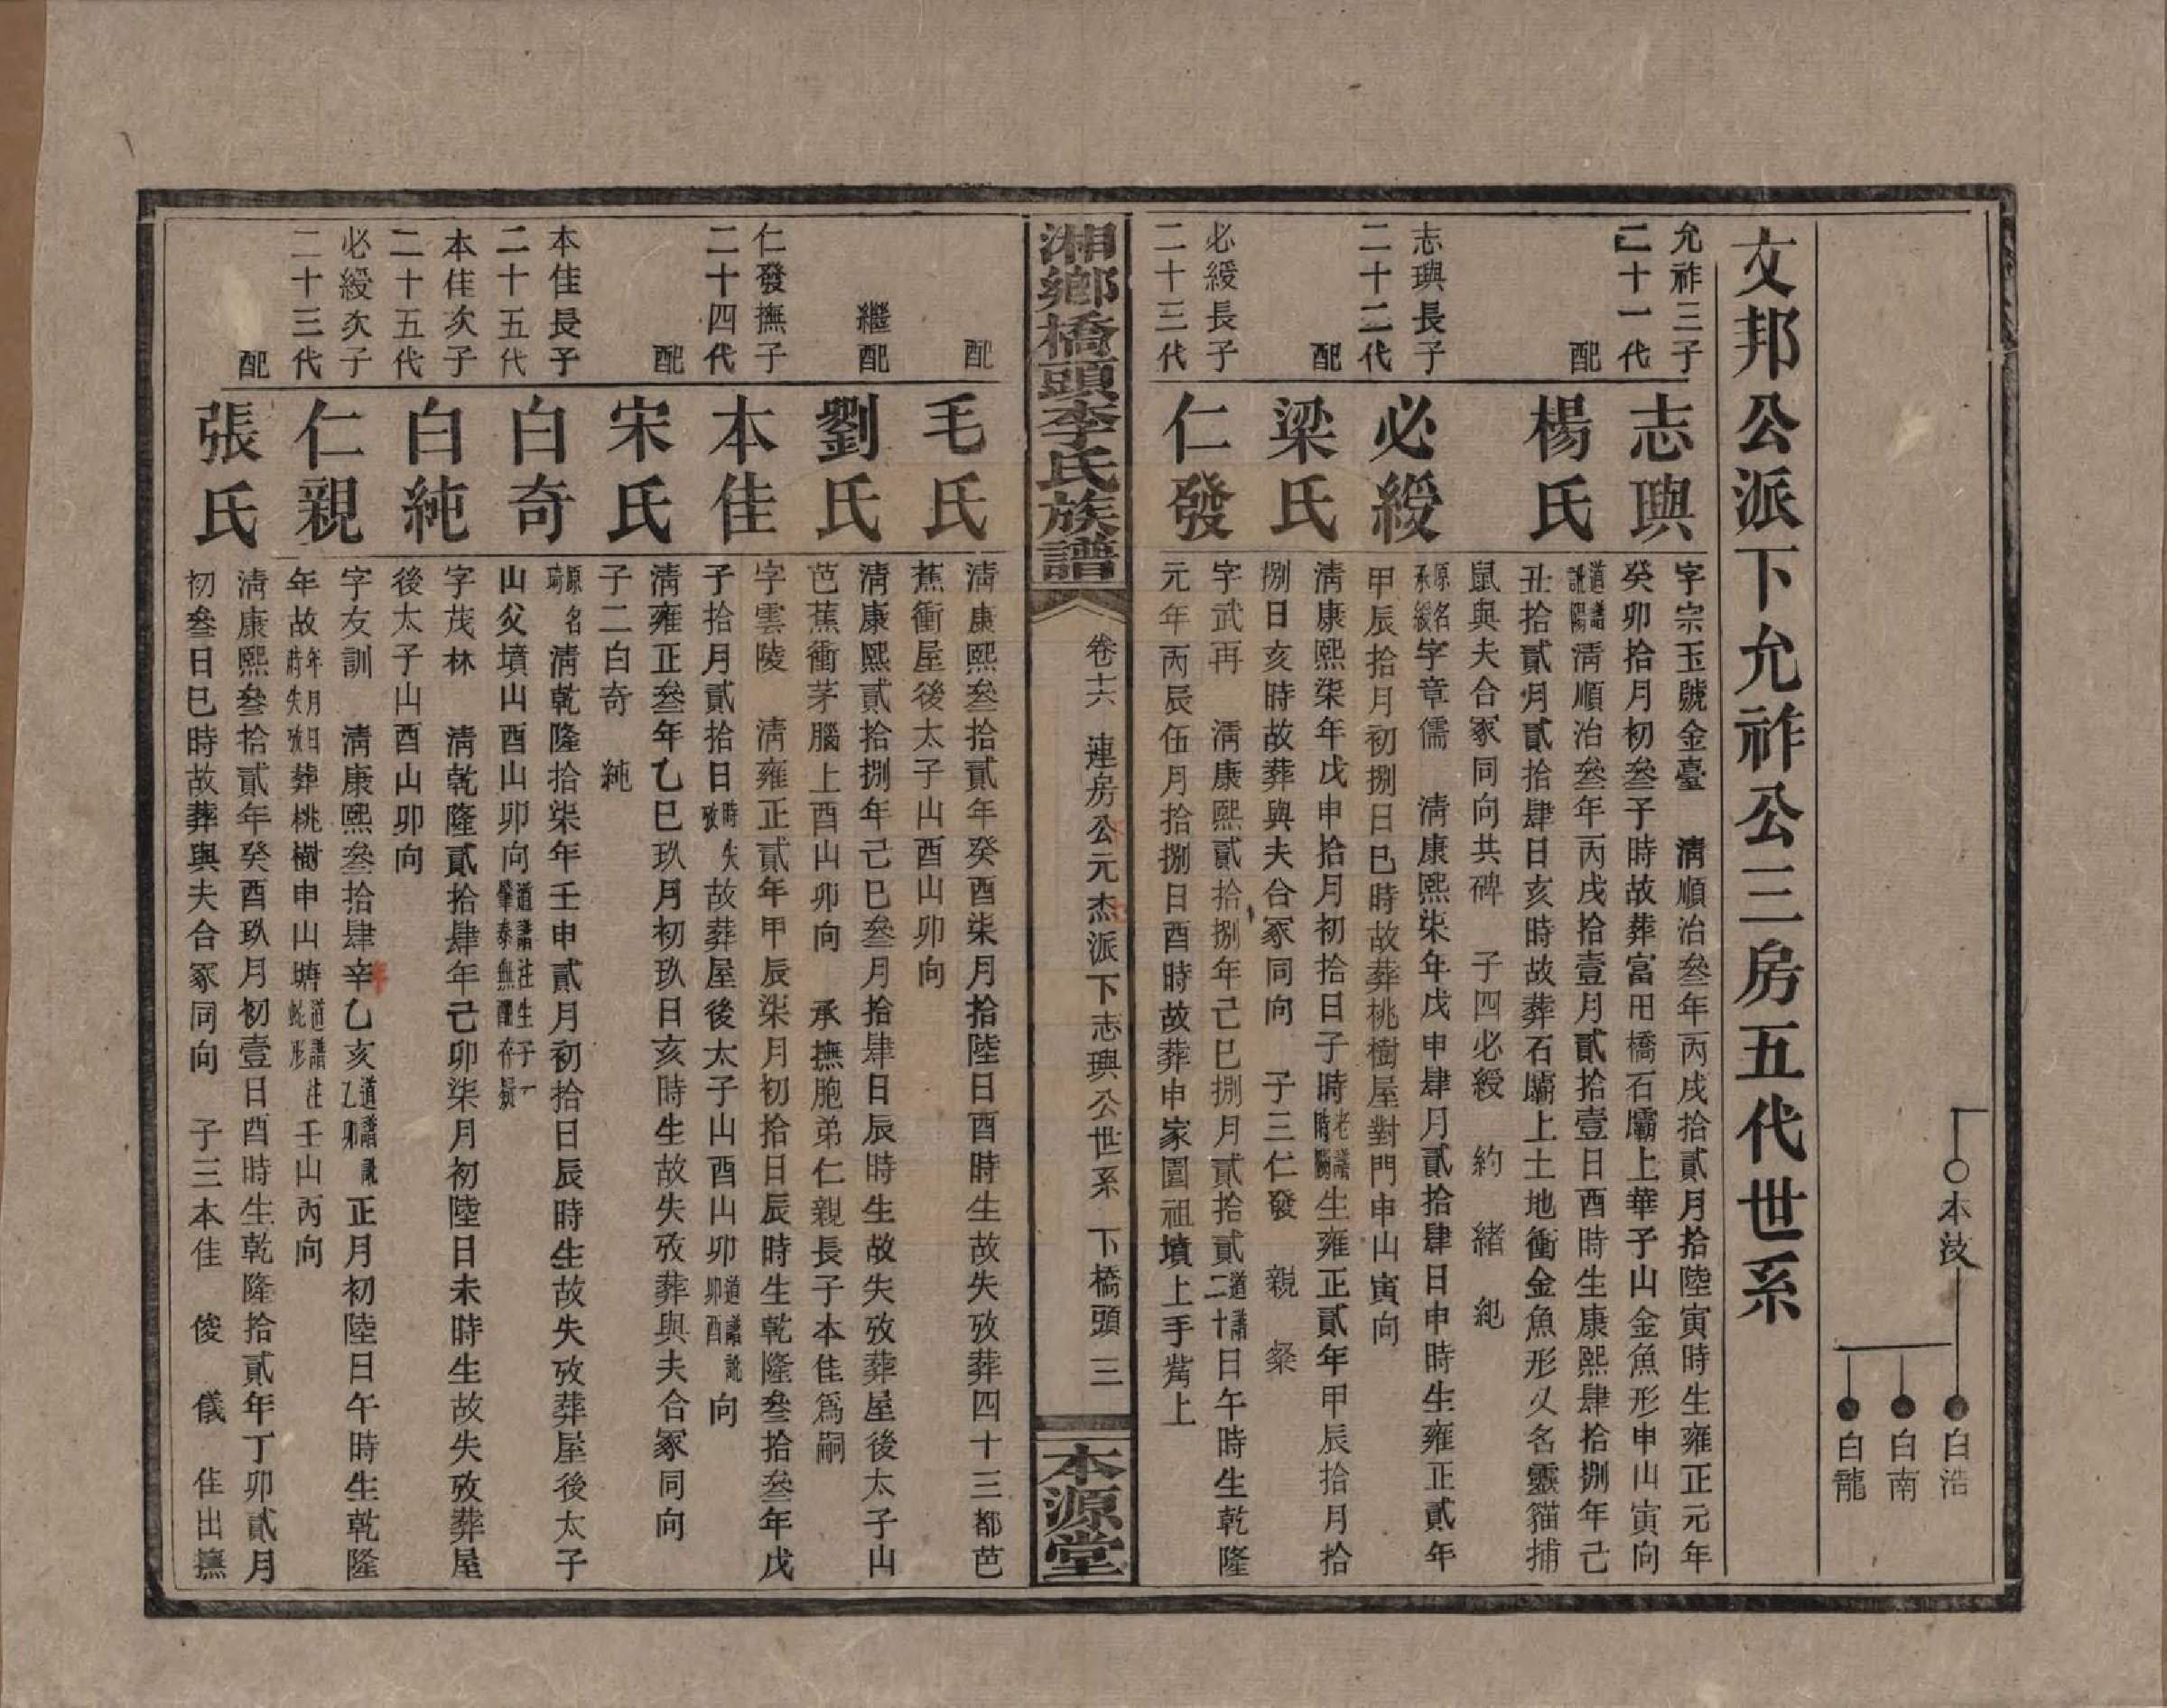 本芨
白浩
白南
白龍
文邦公派下允祚公三房五代世系
允祚三子
二十一代
志璵
字宗玉號金臺　淸順治叄年丙戌拾貳月拾陸寅時生雍正元年
癸卯拾月初叄子時故葬富田橋石壩上華子山金魚形申山寅向
配
楊氏
道譜訛陽淸順治叄年丙戌拾壹月貳拾壹日酉時生康熙肆拾捌年己
丑拾貳月貳拾肆日亥時故葬石壩上土地衝金魚形乂名靈猫捕
鼠與夫合冢同向共碑　子四必綬　約　緒　紀
志璵長子
二十二代
必綬
原名承綬字章儒　淸康熙柒年戊申肆月貳拾肆日申時生雍正貳年
甲辰拾月初捌日巳時故葬桃樹屋對門申山寅向
配
梁氏
淸康熙柒年戊申拾月初拾日子時老譜時生雍正貳年甲辰拾月拾
捌日亥時故葬與夫合冢同向　子三仁發　親　粲
必綬長子
二十三代
仁發
字武再　淸康熙貳拾捌年己巳捌月貳拾貳道譜二十日午時生乾隆
元年丙辰伍月拾捌日酉時故葬申家園祖墳上手觜上
湘鄉橋頭李氏族譜
卷十六　連房公元杰派下志璵公世系　下橋頭　三
本源堂
配
毛氏
淸康熙叄拾貳年癸酉柒月拾陸日酉時生故失攷葬四十三都芭
蕉衝屋後太子山酉山卯向
繼配
劉氏
淸康熙貳拾捌年己巳叄月拾肆日辰時生故失攷葬屋後太子山
芭蕉衝茅腦上酉山卯向　承撫胞弟仁親長子本佳爲嗣
仁發撫子
二十四代
本佳
字雲陵　淸雍正貳年甲辰柒月初拾日辰時生乾隆叄拾叄年戊
子拾月貳拾日時失攷故葬屋後太子山酉山卯道譜訛卯酉向
配
宋氏
淸雍正叄年乙巳玖月初玖日亥時生故失攷葬與夫合冢同向
子二白奇　純
本佳長子
二十五代
白奇
原名琦　淸乾隆拾柒年壬申貳月初拾日辰時生故失攷葬屋後太子
山父墳山酉山卯向道譜注生子一肇泰無聞存疑
本佳次子
二十五代
白純
字茂林　淸乾隆貳拾肆年己卯柒月初陸日未時生故失攷葬屋
後太子山酉山卯向
必綬次子
二十三代
仁親
字友訓　淸康熙叄拾肆年乙亥道譜訛乙卯正月初陸日午時生乾隆
年故年月日時失攷葬桃樹申山塝道譜注蛇形壬山丙向
配
張氏
淸康熙叄拾貳年癸酉玖月初壹日酉時生乾隆拾貳年丁卯貳月
初叄日巳時故葬與夫合冢同向　子三本佳　俊　儀　佳出撫